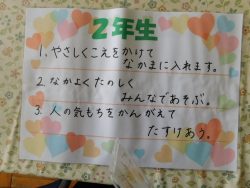 2年生
1. やさしくこえをかけて
なかまに入れます。
2. なかよくたのしく
みんなであそぶ。
3. 人の気もちをかんがえて
たすけあう。